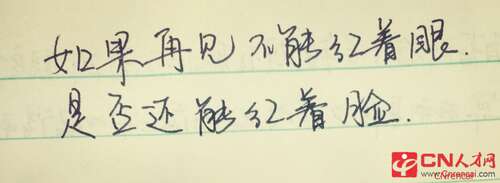 如果再见不能红着眼.
是否还能红着脸.
CN人才网
Cnrencai
www.Cnrencai.com